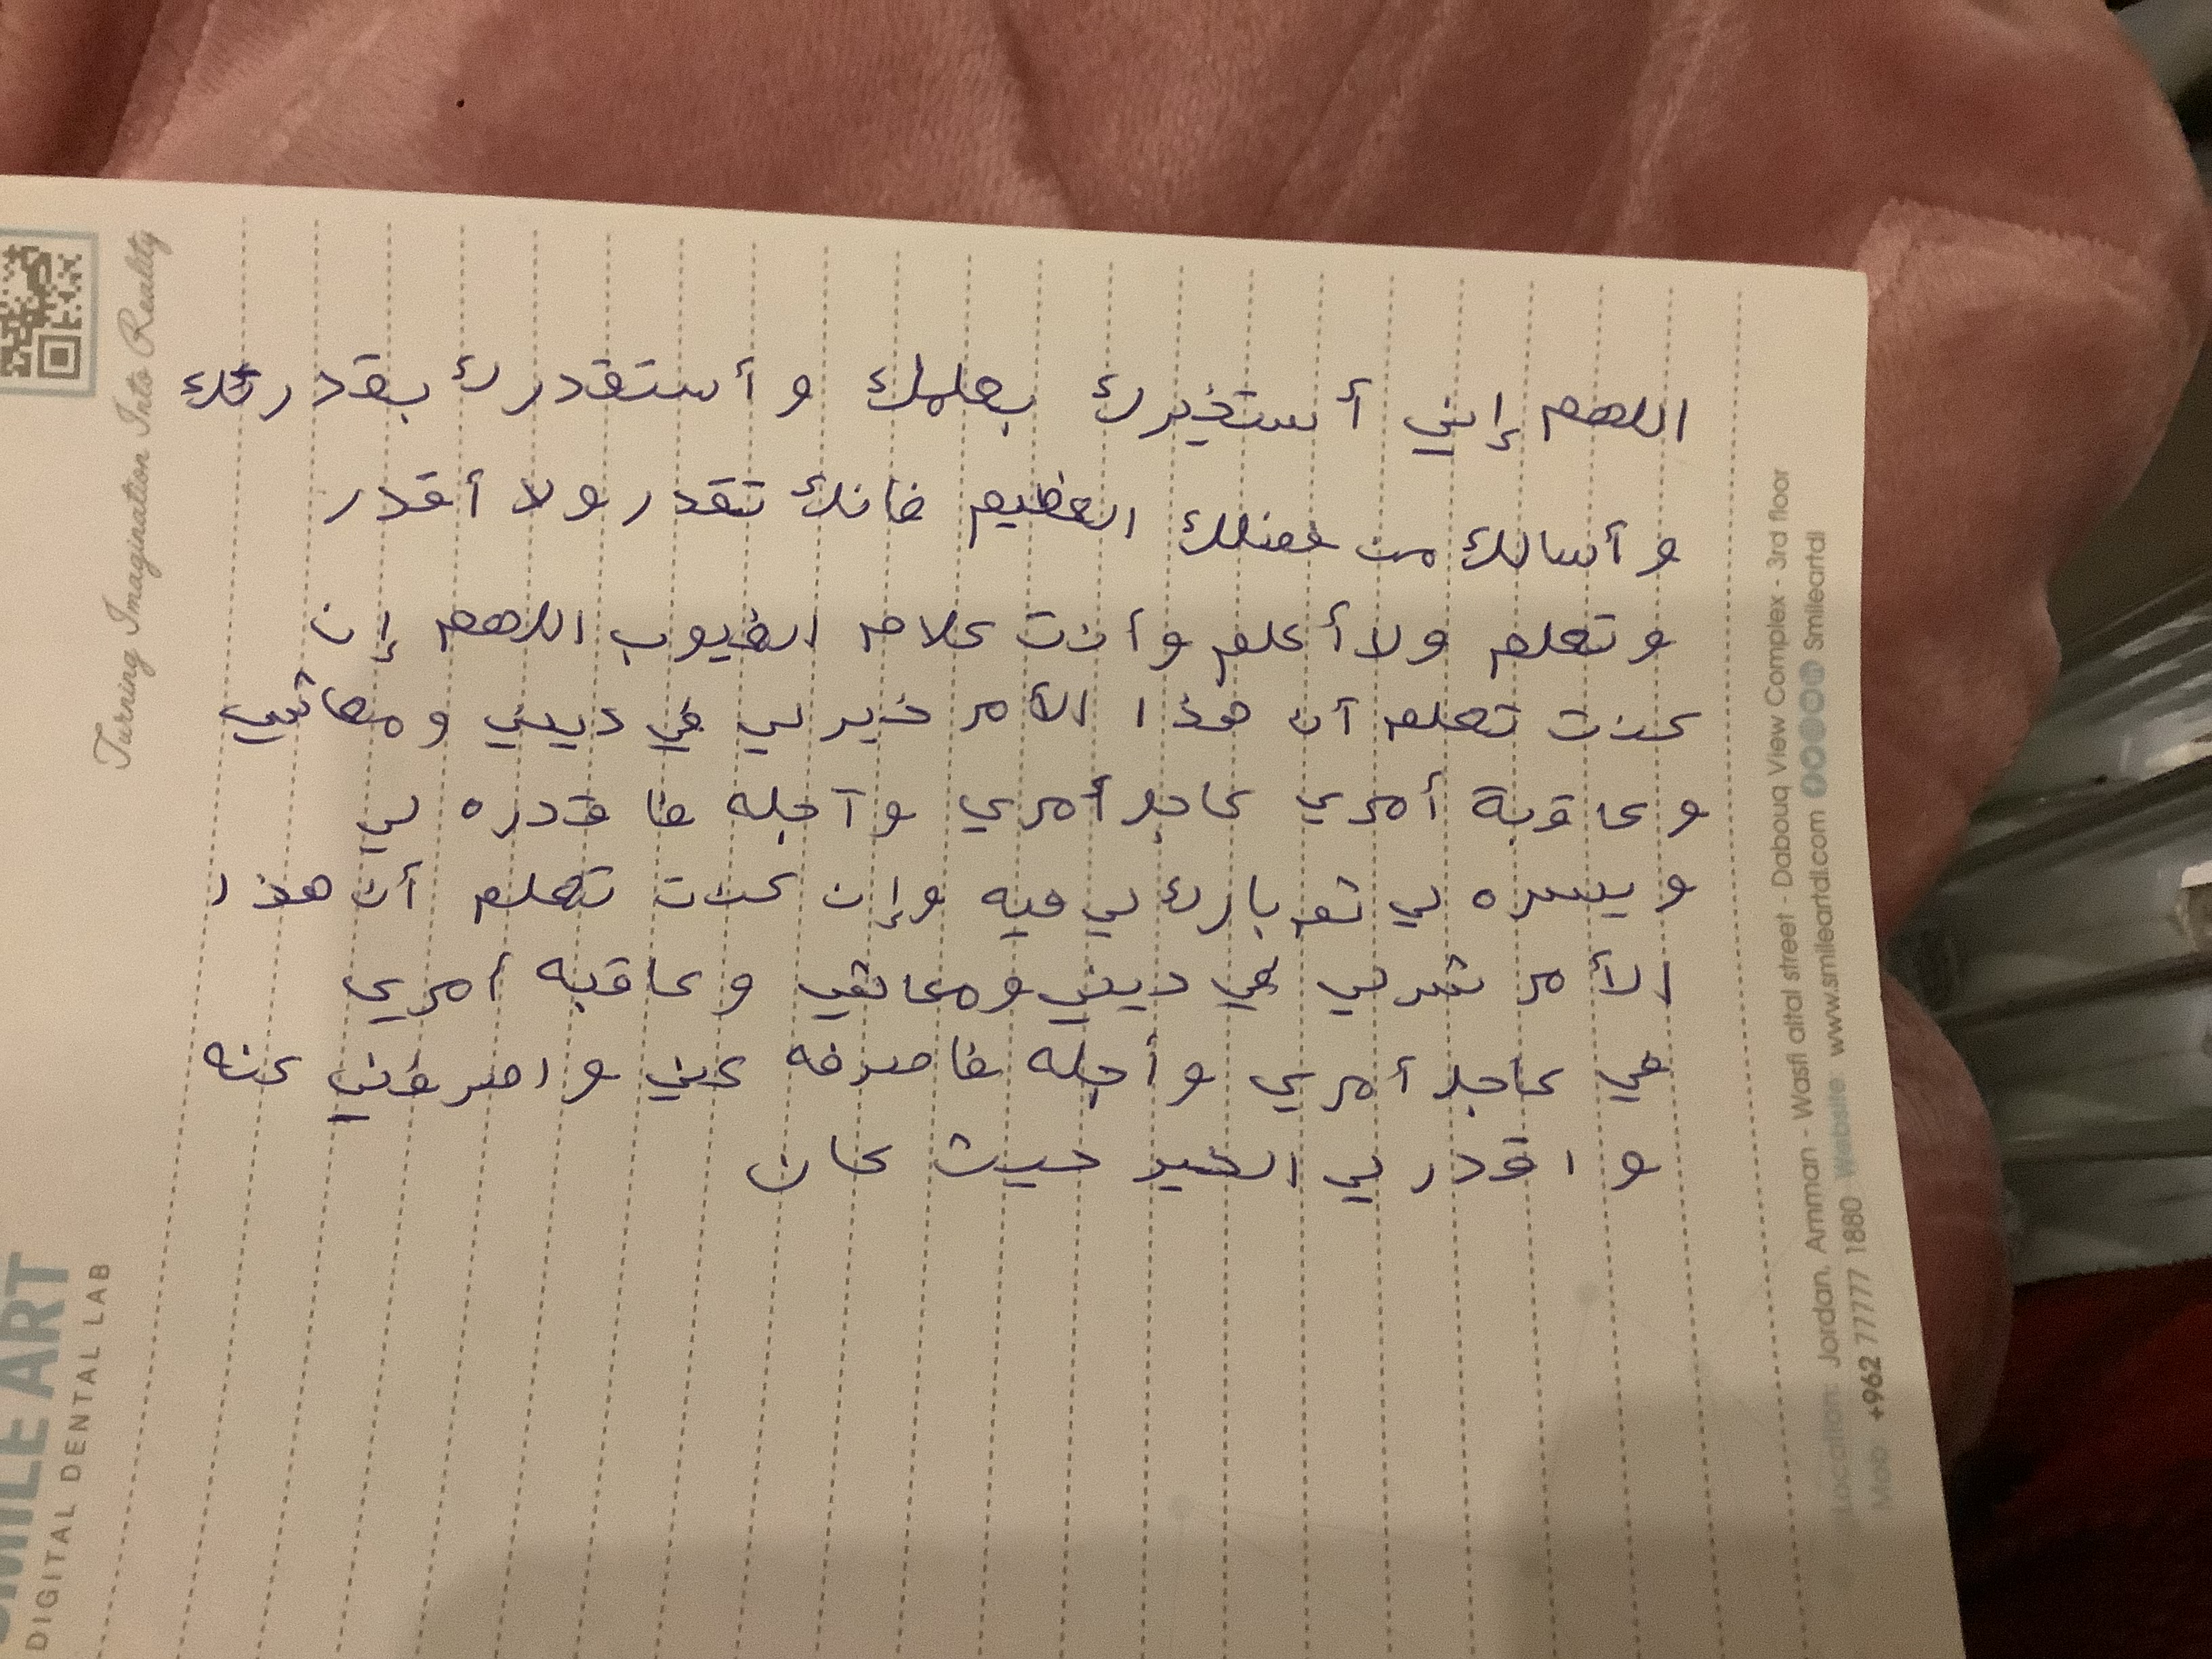 اللهم إني أستخيرك بعلمك و أستقدرك بقدرتك
و أسالك من فضلك العظيم فانك تقدر ولا أقدر
وتعلم ولا أعلم وأنت علام الغيوب اللهم إن
كنت تعلم أن هذا الأمر خير لي في ديني ومعاشي
وعاقبة أمري عاجل أمري وآجله فا قدره لي
ويسره لي ثم بارك لي فيه وإن كنت تعلم أن هذا
الأمر شر لي في ديني ومعاشي وعاقبه أمري
في عاجل أمري وأجله فاصرفه عني واصرفني عنه
واقدر لي الخير حيث كان
Turning Imagination Into Reality
SMILE ART
DIGITAL DENTAL LAB
Location: Jordan, Amman - Wasfi altal street - Dabouq View Complex - 3rd floor
Mob: +962 77777 1880 Website: www.smileartdl.com Smileartdl